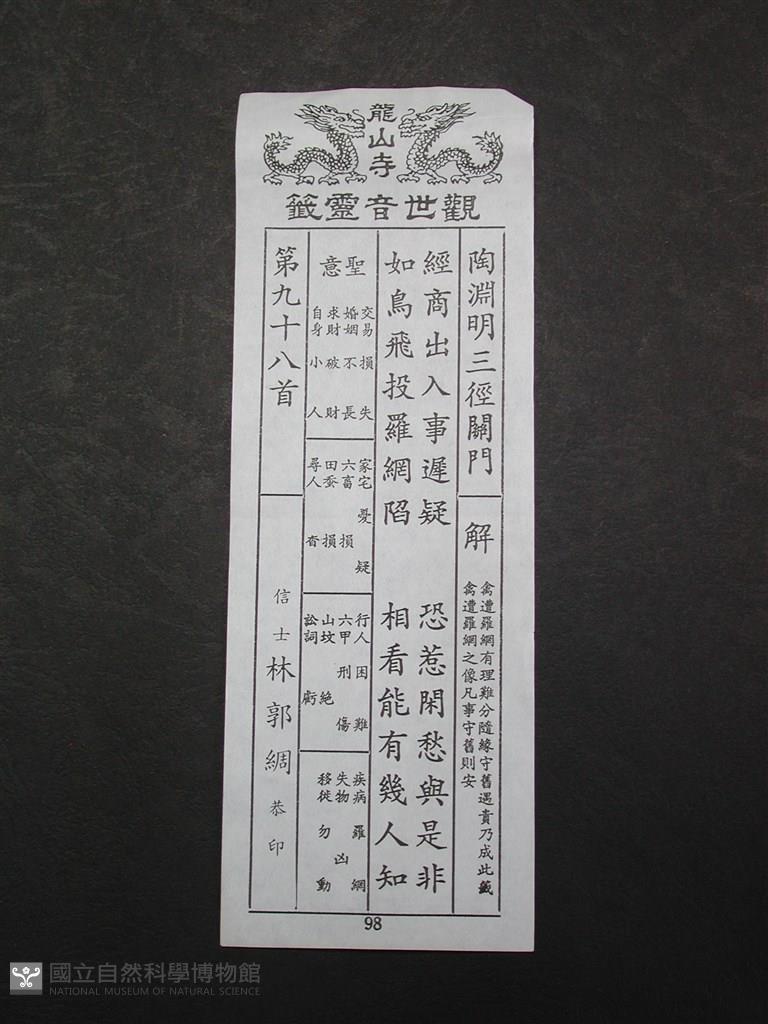 龍山寺
觀世音靈籤
陶淵明三徑關門
解
禽遭羅網有理難分隨緣守舊遇貴乃成此籤
禽遭羅網之像凡事守舊則安
經商出入事遲疑 恐惹閑愁與是非
如鳥飛投羅網陷 相看能有幾人知
聖意
交易損失
婚姻不長
求財破財
自身小人
家宅憂疑
六畜損
田蚕損
尋人杳
行人困難
六甲刑傷
山坟絕
訟詞虧
疾病羅網
失物凶
移徙勿動
第九十八首
信士林郭綢恭印
98
國立自然科學博物館
NATIONAL MUSEUM OF NATURAL SCIENCE